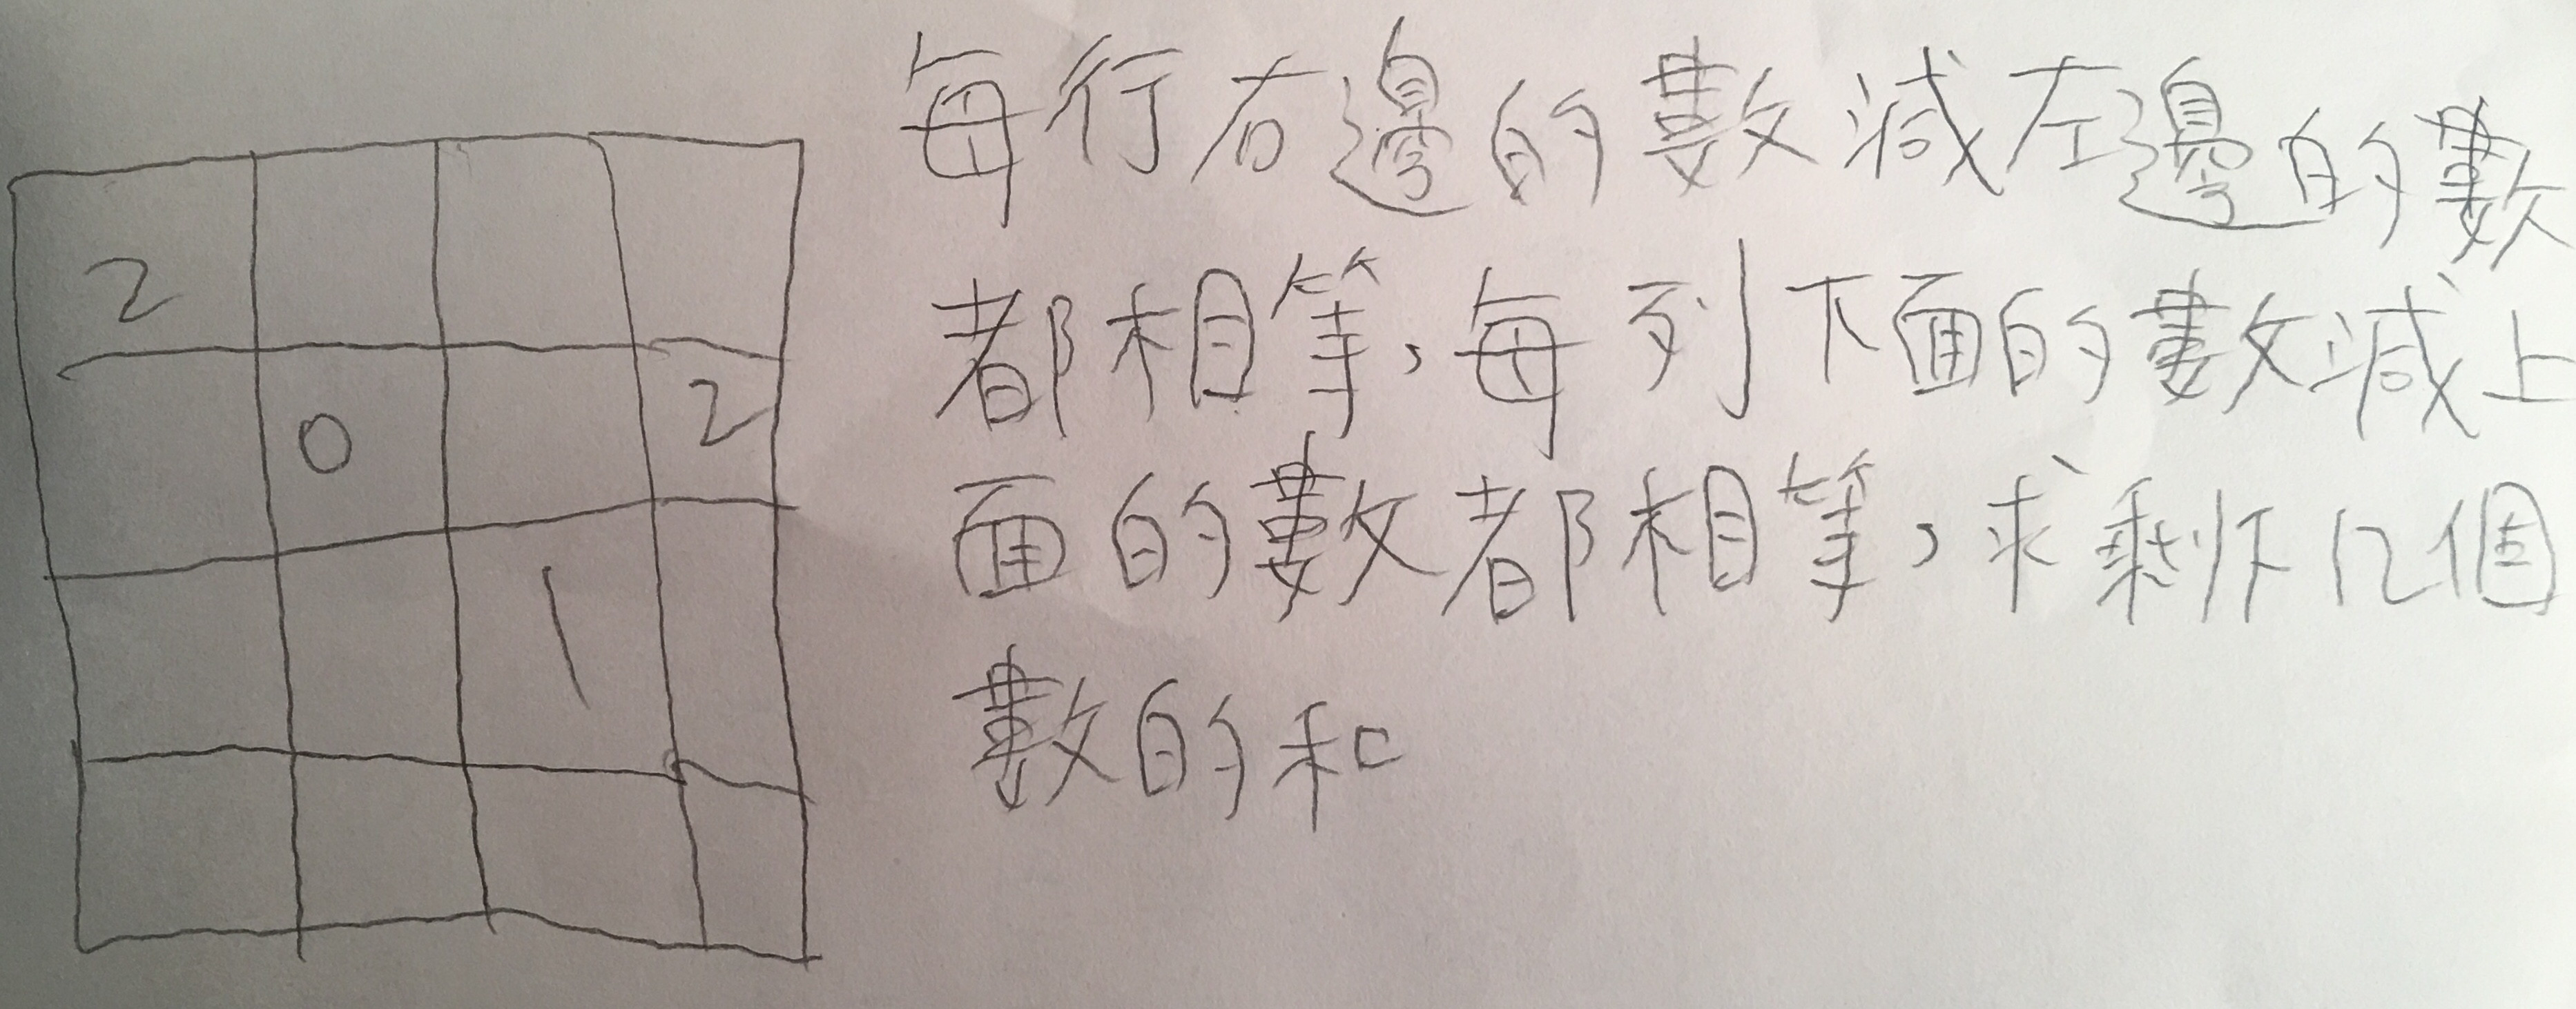 2
0 2
1
每行右邊的數減左邊的數
都相等，每列下面的數減上
面的數都相等，求剩下几個
數的和